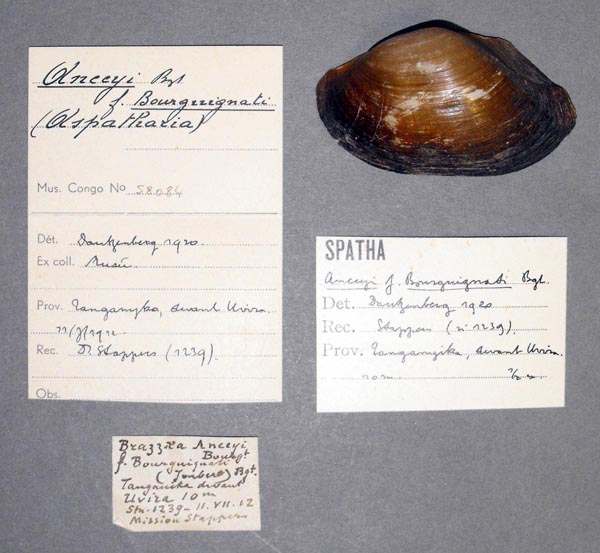 Anceyi Bgt
f. Bourguignati
(Aspatharia)
Mus. Congo No 58084
Dét. Dautzenberg 1920.
Ex coll. Musée
Prov. Tanganyka, devant Uvira.
Rec. Dr Stappers (1239).
Obs.
SPATHA
Anceyi f. Bourguignati Bgt.
Det. Dautzenberg 1920
Rec. Stappers (n° 1239).
Prov. Tanganyika, devant Uvira.
10 m
Brazzæa Anceyi
Bourgt
f. Bourguignati
(Joubert) Bgt.
Tanganika devant
Uvira 10 m
Stn. 1239 - 11. VII. 12
Mission Stappers